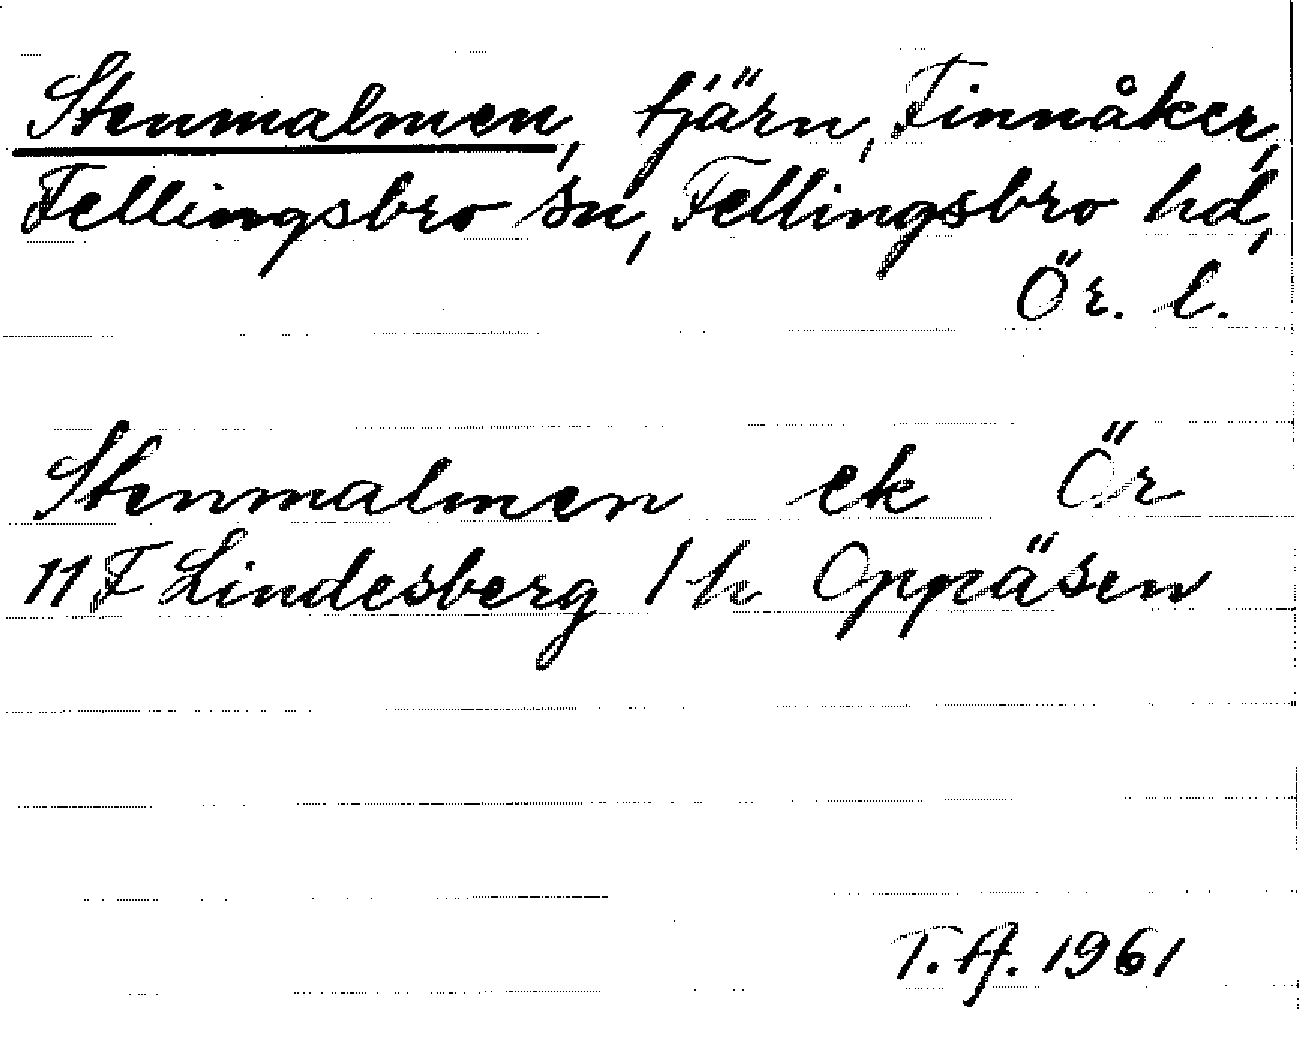 Stenmalmen, tjärn, Finnåker,
Fellingsbro sn, Fellingsbro hd,
Ör. l.
Stenmalmen ek Ör
11F Lindesberg 1 h Oppäsen
T.A. 1961